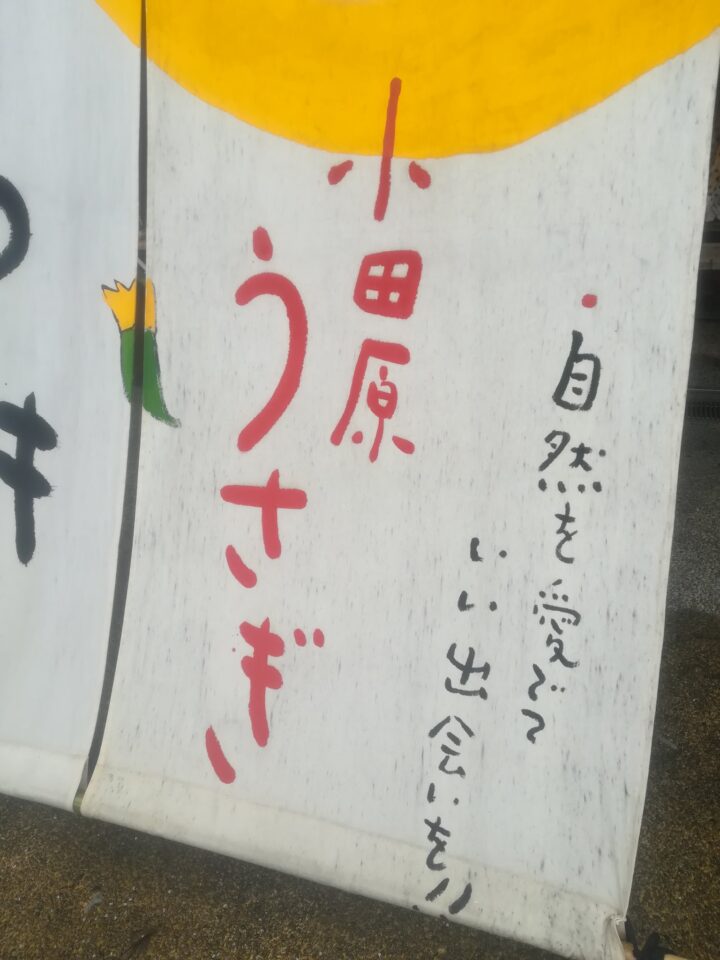 ・自然を愛でて
いい出会いを!!
小田原
うさぎ